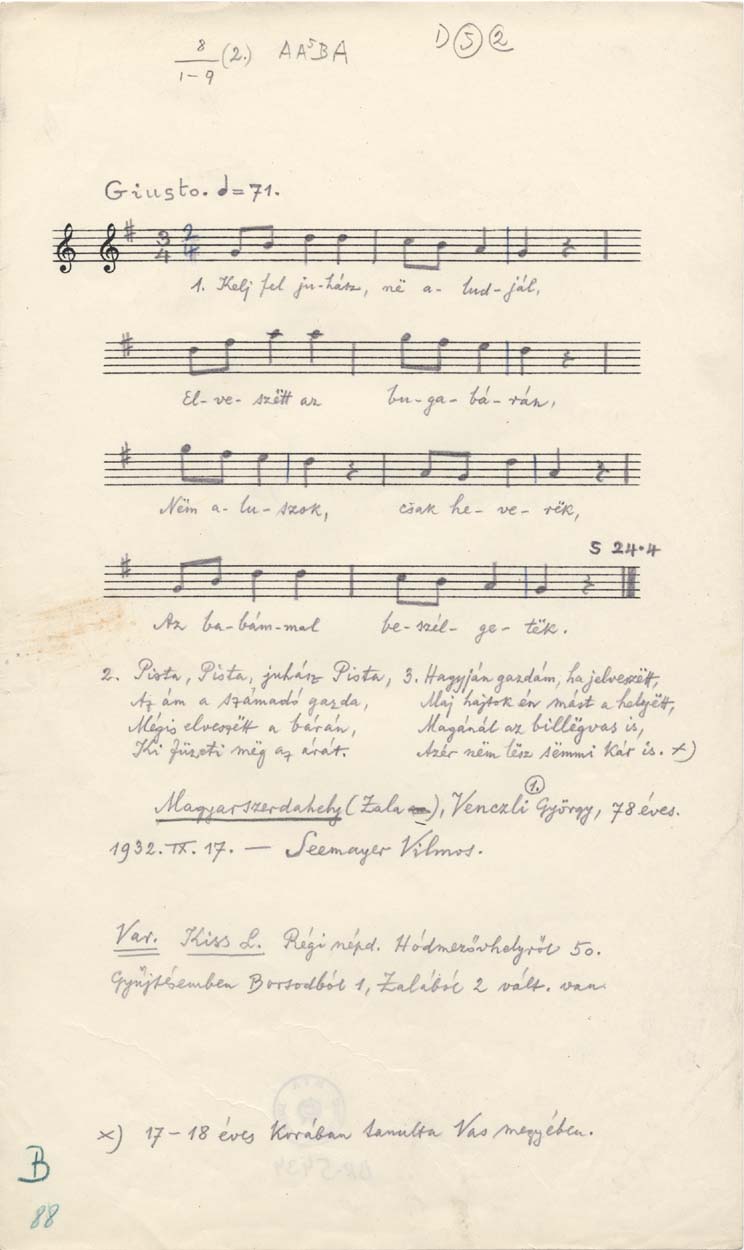 8/1-9 (2.) A A⁵ B A D ⑤ ②
Giusto. = 71.
3/4 2/4
1. Kelj fel ju-hász, në a- lud-jál,
El-ve-szëtt az bu-ga-bá-rán,
Nëm a-lu-szok, csak he-ve-rëk,
S 24.4
Az ba-bám-mal be-szél-ge-tëk.
2. Pista, Pista, juhász Pista, 3. Hagyján gazdám, ha jelveszëtt,
Az ám a számadó gazda, Maj hajtok én mást a helyëtt,
Mégis elveszëtt a bárán, Magánál az billëgvas is,
Ki füzeti mëg az árát. Azér nëm lësz sëmmi kár is. x)
Magyarszerdahely (Zala), Venczli György, 78 éves. 1.
1932. IX. 17. — Seemayer Vilmos.
Var. Kiss L. Régi népd. Hódmezővhelyről 50.
Gyűjtésemben Borsodból 1, Zalából 2 vált. van.
x) 17-18 éves korában tanulta Vas megyében.
B
88